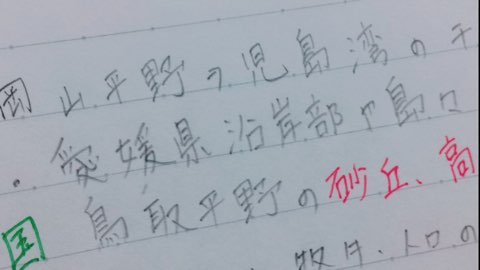 岡山平野ヲ児島湾の干
・愛媛県沿岸部や島々
国 鳥取平野の砂丘、高
牧牛、トロの